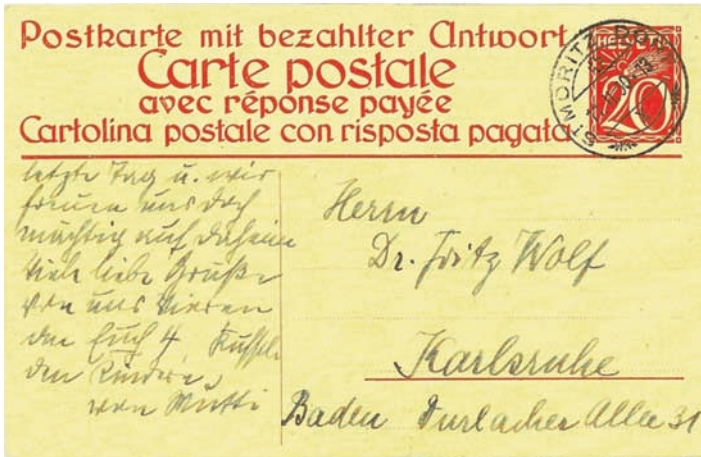 Postkarte mit bezahlter Antwort
Carte postale
avec réponse payée
Cartolina postale con risposta pagata
HELVETIA
20
ST. MORITZ DORF
letzte Tag u. wir
freuen uns doch
mächtig auf daheim
Viele liebe Grüße
von uns Vieren
an Euch 4,
den Kindern,
von Mutti
Herrn
Dr. Fritz Wolf
Karlsruhe
Baden Durlacher Allee 31